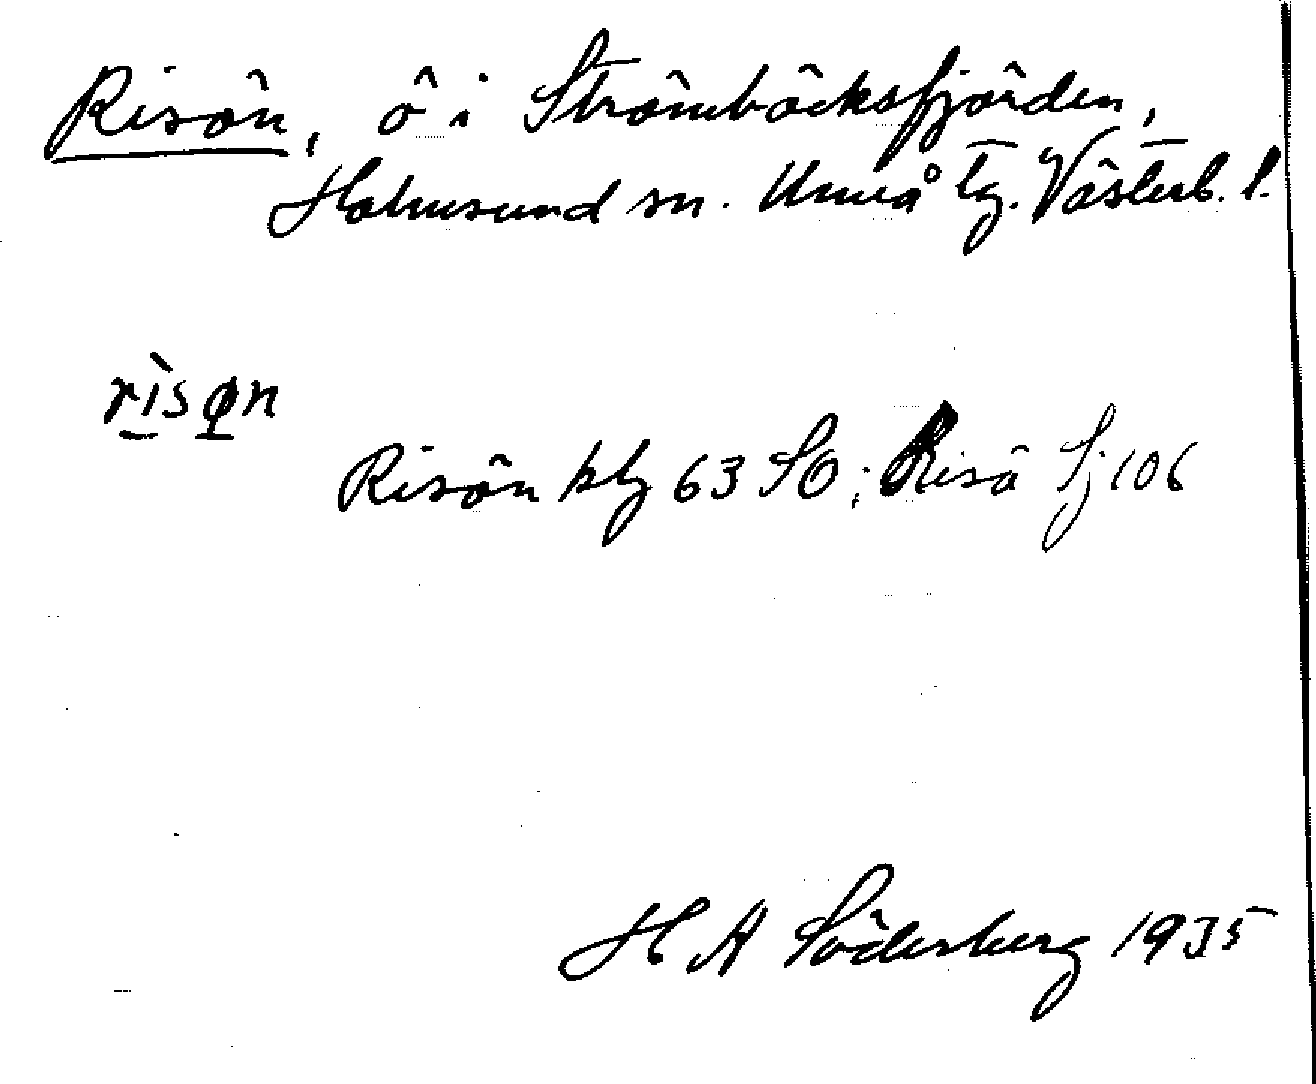 Risön, ö i Strömbäcksfjärden,
Holmsund sn. Umeå tg. Västerb. l.
rìsøn
Risön klg 63 SO; Riså Sj 106
H A Söderberg 1935